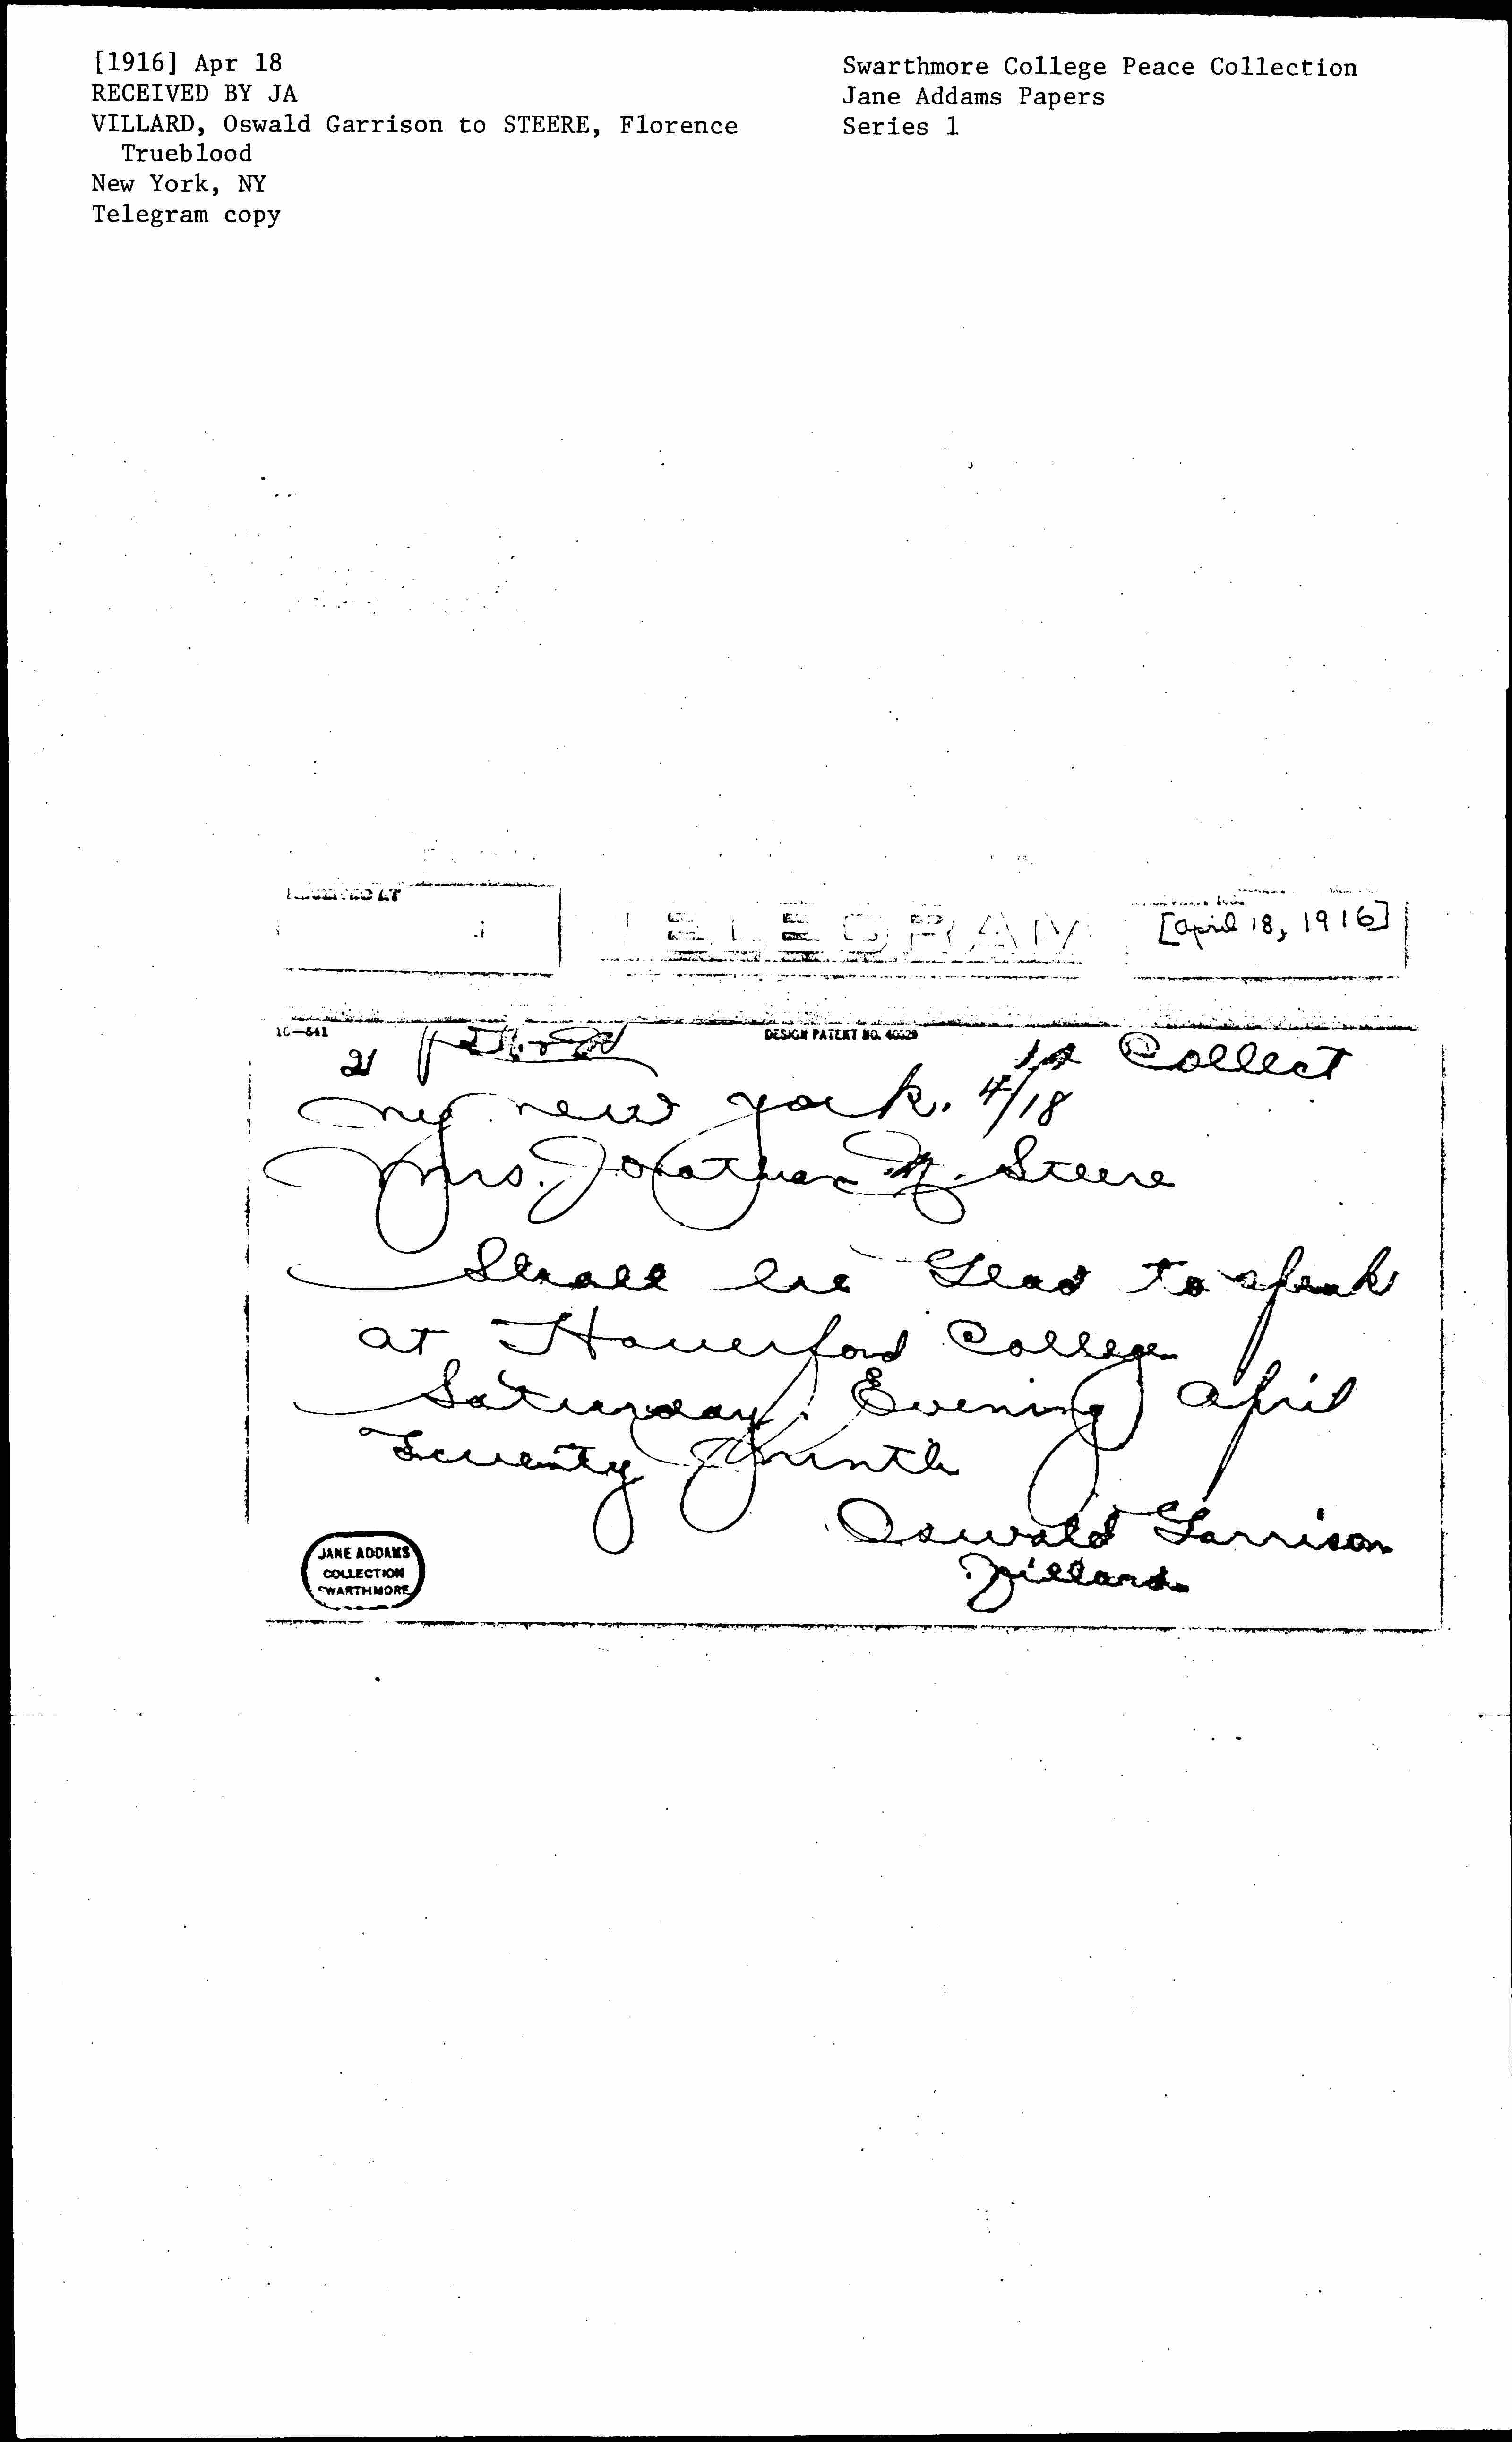 [1916] Apr 18
RECEIVED BY JA
VILLARD, Oswald Garrison to STEERE, Florence
Trueblood
New York, NY
Telegram copy
Swarthmore College Peace Collection
Jane Addams Papers
Series 1
RECEIVED AT
TELEGRAM
[April 18, 1916]
10—541
DESIGN PATENT NO. 40529
21
Collect
ny new york. 4/18
Mrs. Jonathan M. Steere
Shall be Glad to speak
at Haverford College
Saturday Evening April
Twenty Ninth
Oswald Garrison
Villard
JANE ADDAMS
COLLECTION
SWARTHMORE